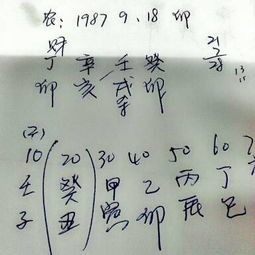 农: 1987 9、18 卯
丁 辛 壬 癸
卯 亥 戌 卯
10 (20) 30 40 50 60 7
壬 癸 甲 乙 丙 丁
子 丑 寅 卯 辰 巳